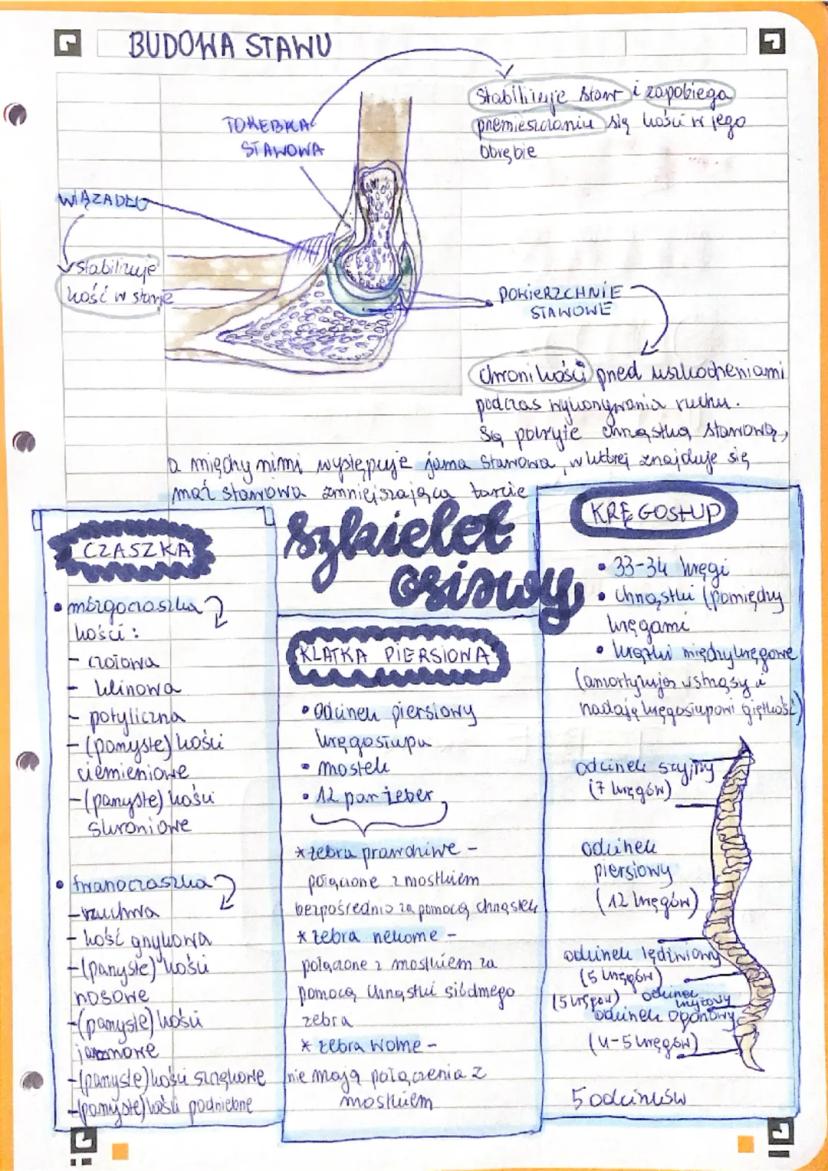 BUDOWA STAWU
stabilizuje staw i zapobiega
przemieszczaniu się kości w jego
obrębie
TOREBKA
STAWOWA
WIĄZADŁO
stabilizuje
kość w stawie
POWIERZCHNIE
STAWOWE
chroni kości przed uszkodzeniami
podczas wykonywania ruchu.
Są pokryte chrząstką stawową,
a między nimi występuje jama stawowa, w której znajduje się
maź stawowa zmniejszająca tarcie
szkielet
osiowy
CZASZKA
• mózgoczaszka
kości:
- czołowa
- klinowa
- potyliczna
- (parzyste) kości
ciemieniowe
- (parzyste) kości
skroniowe
• twarzoczaszka
- żuchwa
- kość gnykowa
- (parzyste) kości
nosowe
- (parzyste) kości
jarzmowe
- (parzyste) kości szczękowe
- (parzyste) kości podniebne
KLATKA PIERSIOWA
• odcinek piersiowy
kręgosłupa
• mostek
• 12 par żeber
* żebra prawdziwe -
połączone z mostkiem
bezpośrednio za pomocą chrząstek
* żebra rzekome -
połączone z mostkiem za
pomocą chrząstki siódmego
żebra
* żebra wolne -
nie mają połączenia z
mostkiem
KRĘGOSŁUP
• 33-34 kręgi
• chrząstki (pomiędzy
kręgami
• krążki międzykręgowe
(amortyzują wstrząsy i
nadają kręgosłupowi giętkość)
odcinek szyjny
(7 kręgów)
odcinek
piersiowy
(12 kręgów)
odcinek lędźwiowy
(5 kręgów)
(5 kręgów) odcinek krzyżowy
odcinek ogonowy
(4-5 kręgów)
5 odcinków